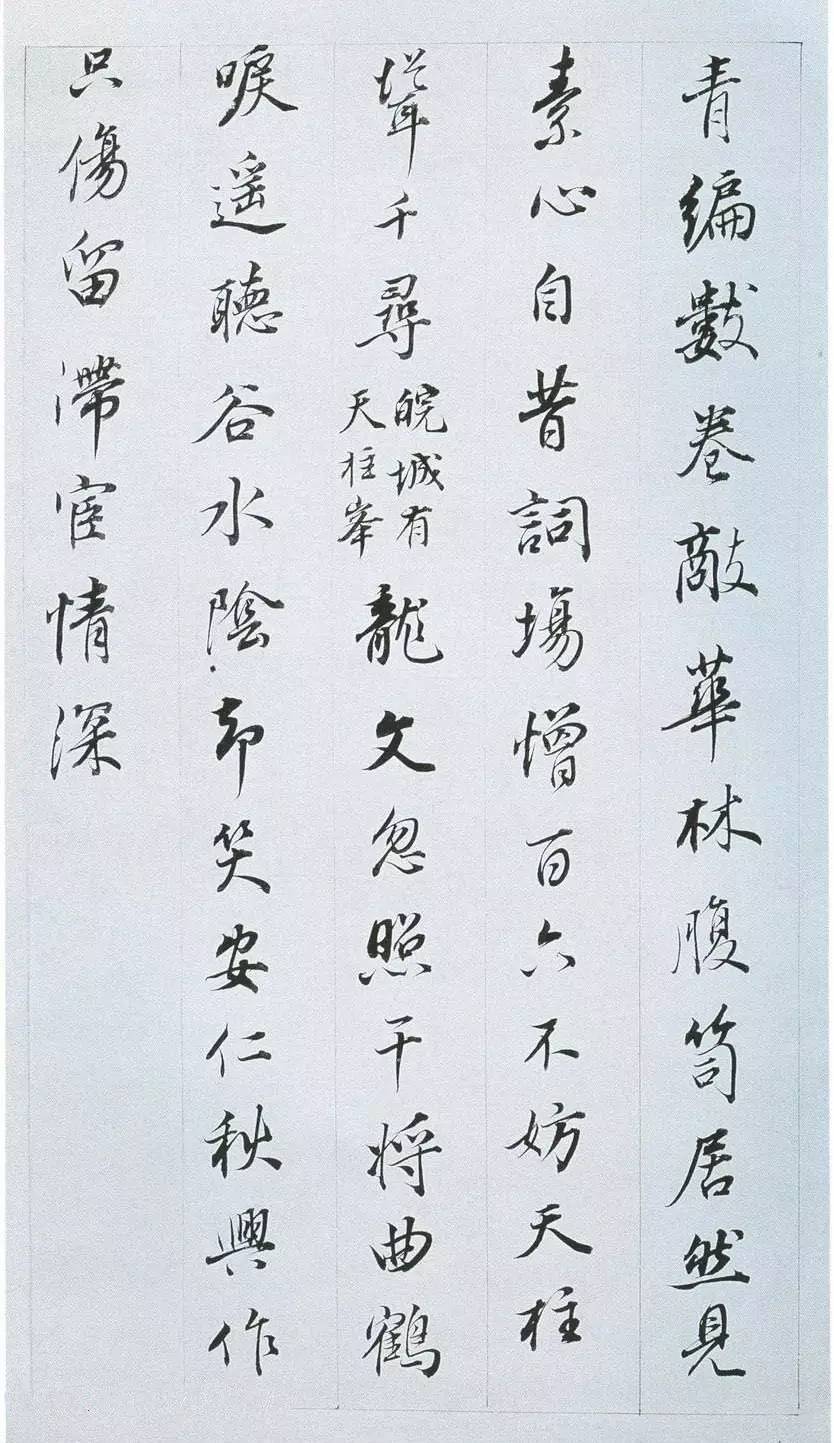 青編數卷敵華林腹笥居然見
素心自昔詞場憎百六不妨天柱
聳千尋皖城有
天柱峯龍文忽照干將曲鶴
唳遥聽谷水陰却笑安仁秋興作
只傷留滯宦情深